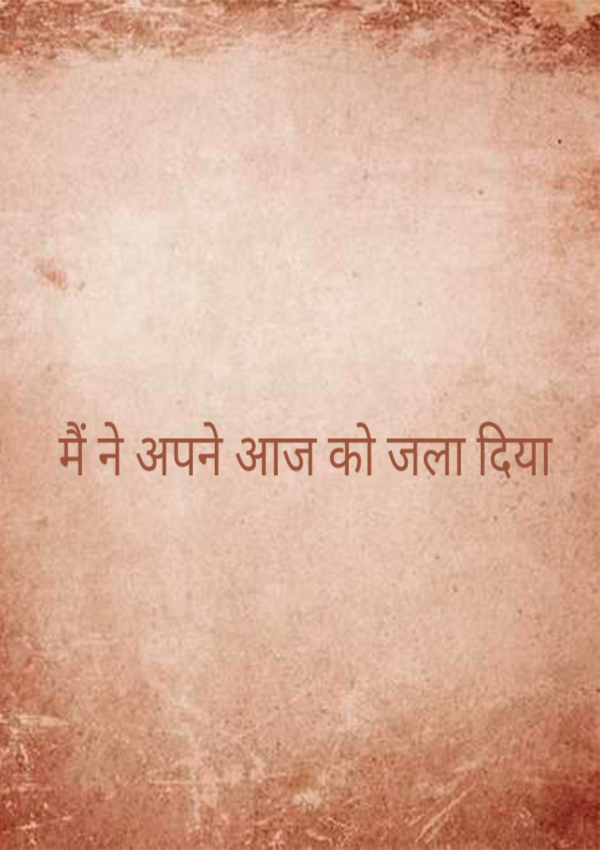 मैं ने अपने आज को जला दिया